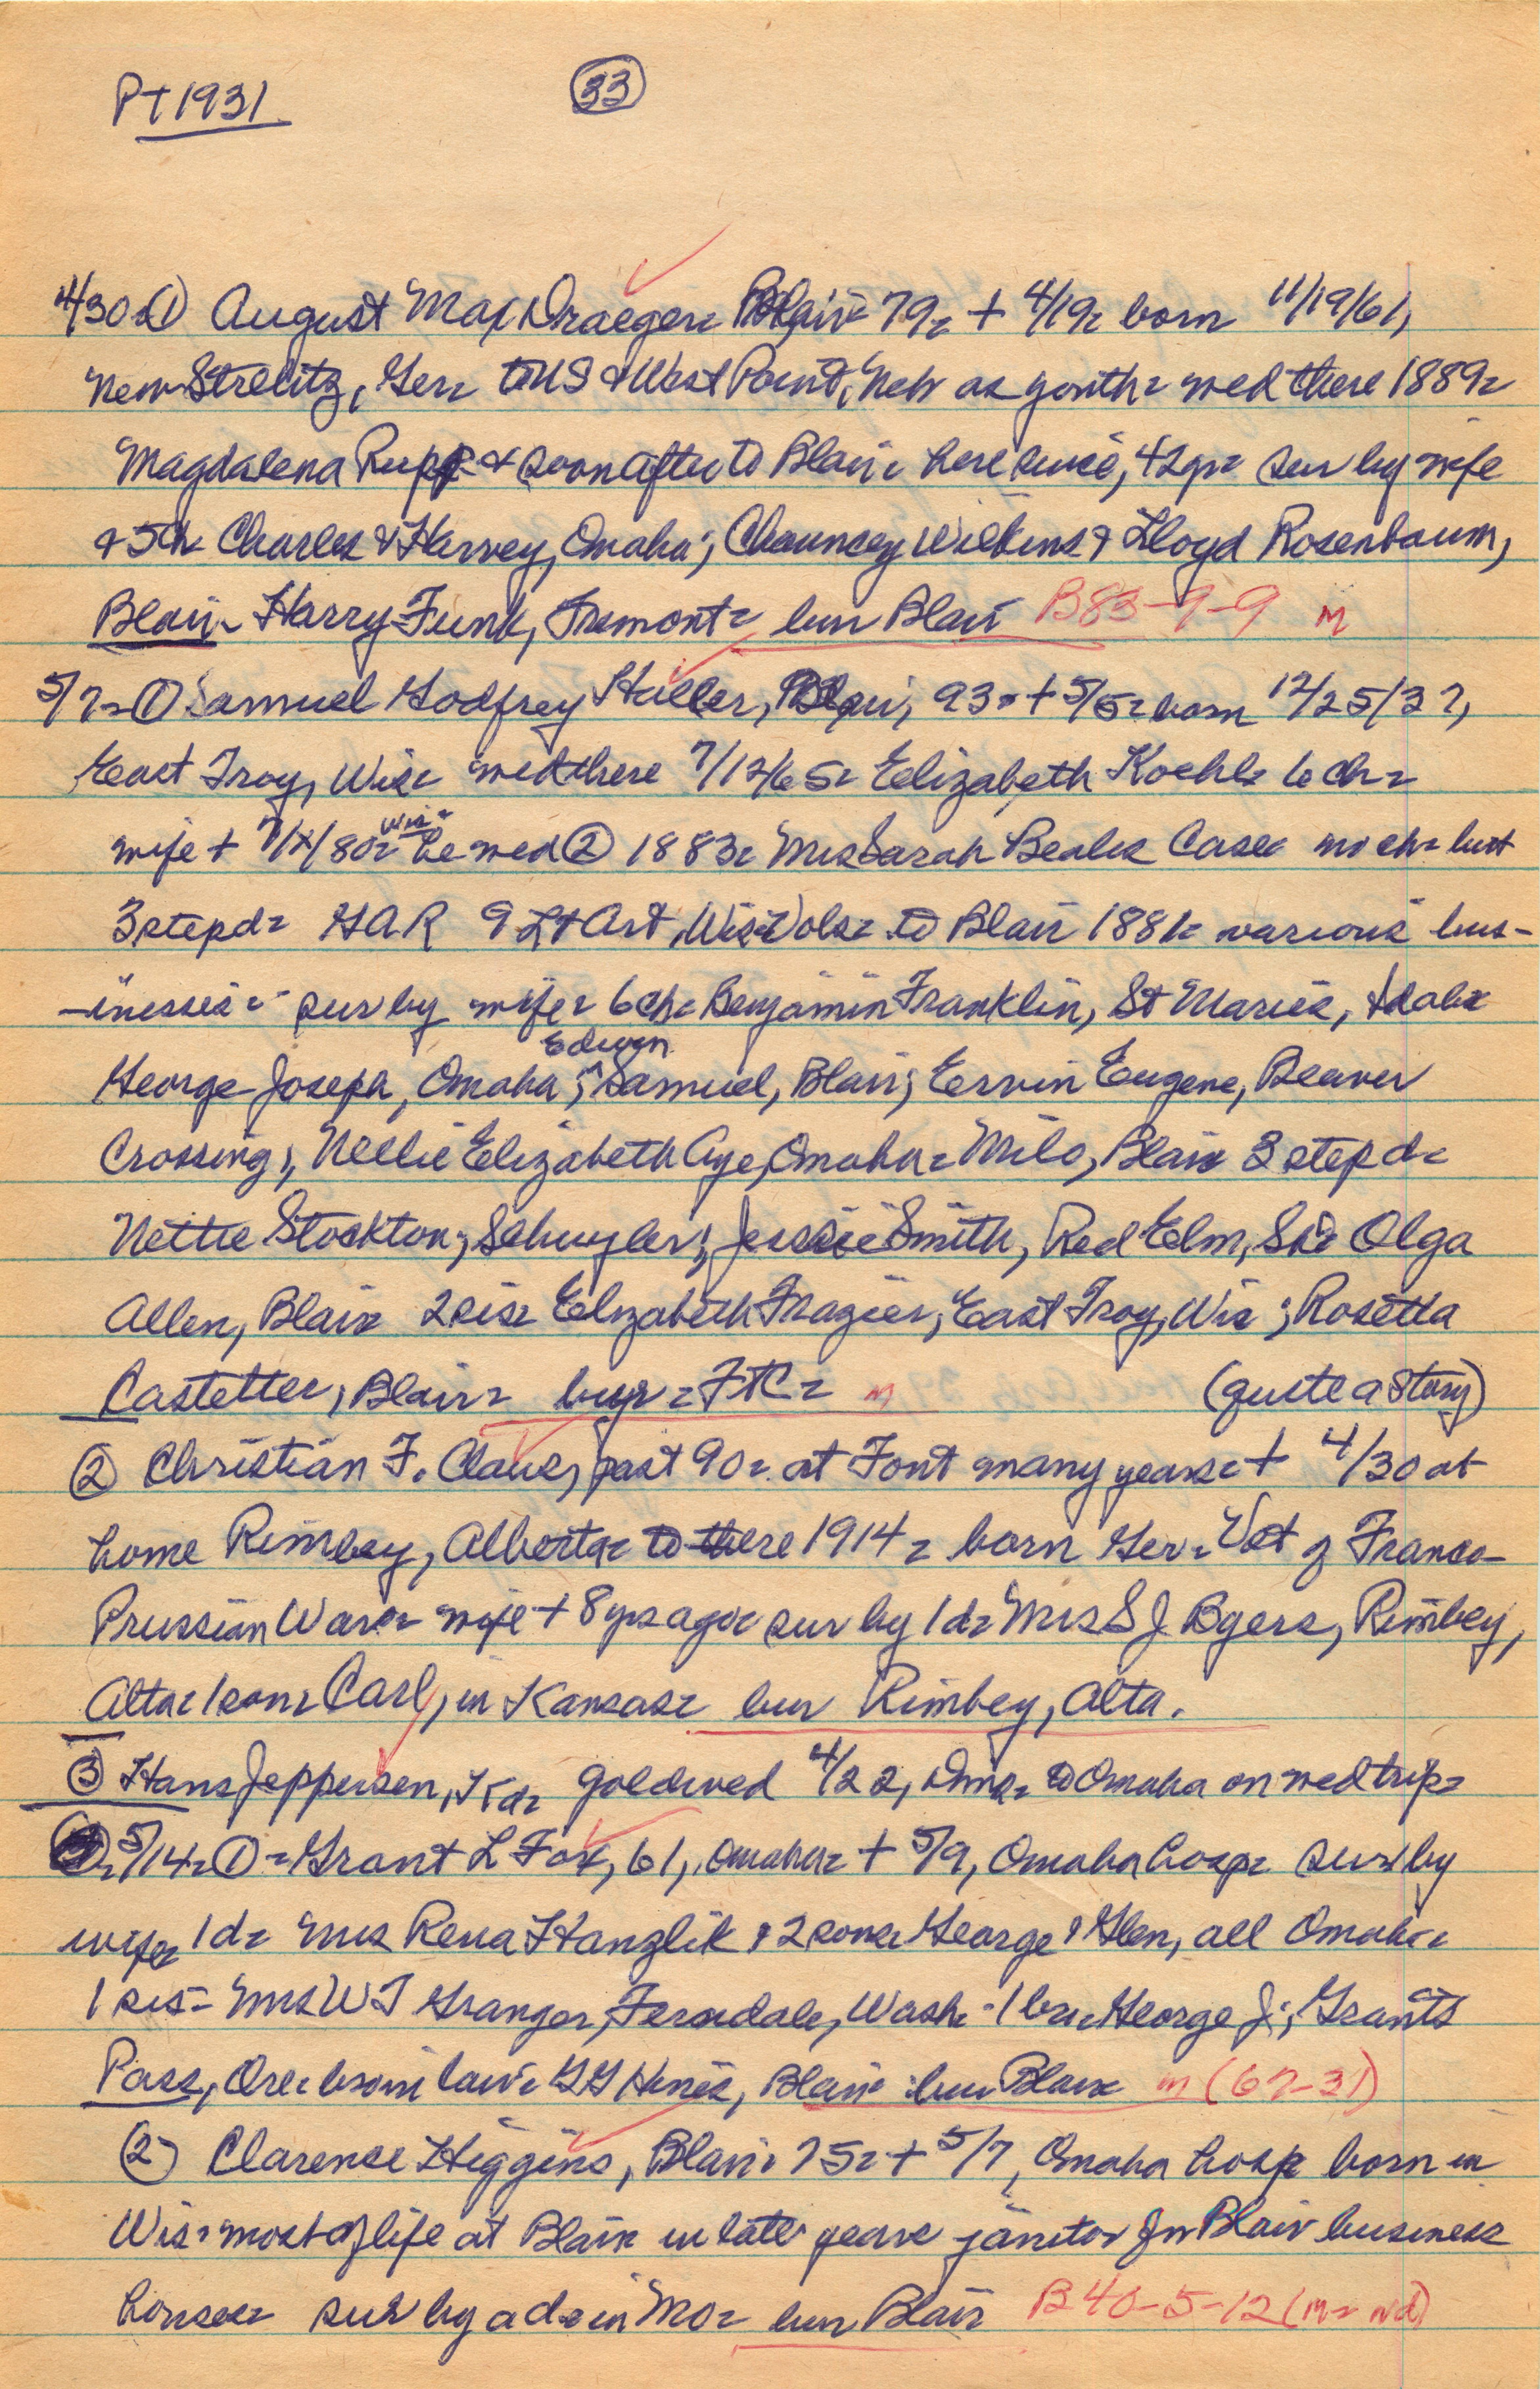 PT 1931 33
4/30= ① August Max Draeger= Blair= 79= + 4/19= born 11/19/61,
New Strelitz, Ger= to US & West Point, Neb as youth= wed there 1889=
Magdalena Rupp & soon after to Blair= here since, 42yr= sur by wife
& 5ch Charles & Harvey, Omaha; Chauncey Wilkins & Lloyd Rosenbaum,
Blair= Harry Funk, Fremont= bur Blair B83-9-9 m
5/7= ① Samuel Godfrey Haller, Blair, 93= + 5/5= born 12/25/37,
East Troy, Wis= wed there 7/12/65= Elizabeth Koehl= 6 ch=
wife + 7/ /80= Wis= he wed ② 1883= Mrs Sarah Beales Case= no ch= but
3 stepd= GAR 9 Lt Art, Wis Vols= to Blair 1881= various bus-
-inesses= sur by wife= 6ch= Benjamin Franklin, St Maries, Idaho=
George Joseph, Omaha; Edwin Samuel, Blair; Ervin Eugene, Beaver
Crossing; Nellie Elizabeth Aye, Omaha= Milo, Blair= 3 stepd=
Nettie Stockton, Schuyler; Jessie Smith, Red Elm, SD= Olga
Allen, Blair= 2 sis= Elizabeth Frazier, East Troy, Wis=; Rosetta
Castetter, Blair= bur= FTC= m (quite a story)
② Christian F. Claus, past 90= at Font many years= + 4/30 at
home Rimbey, Alberta= to there 1914= born Ger= Vet of Franco-
Prussian War= wife + 8 yrs ago= sur by 1 d= Mrs S J Byers, Rimbey,
Alta= 1 son= Carl, in Kansas= bur Rimbey, Alta.
③ Hans Jeppersen, Kd= gold wed 4/22, Oma= to Omaha on wed trip=
5/14= ① = Grant L Fox, 61, Omaha= + 5/9, Omaha hosp= sur by
wife= 1d= Mrs Rena Hanzlik & 2 sons= George & Glen, all Omaha=
1 sis= Mrs W T Granger, Ferndale, Wash= 1 br= George J; Grants
Pass, Ore= bro in law= G G Hines, Blair= bur Blair= m (67-31)
② Clarence Higgins, Blair= 75= + 5/7, Omaha hosp= born in
Wis= most of life at Blair= in late years janitor for Blair business
houses= sur by a d= in Mo= bur Blair B40-5-12 (m= nd)